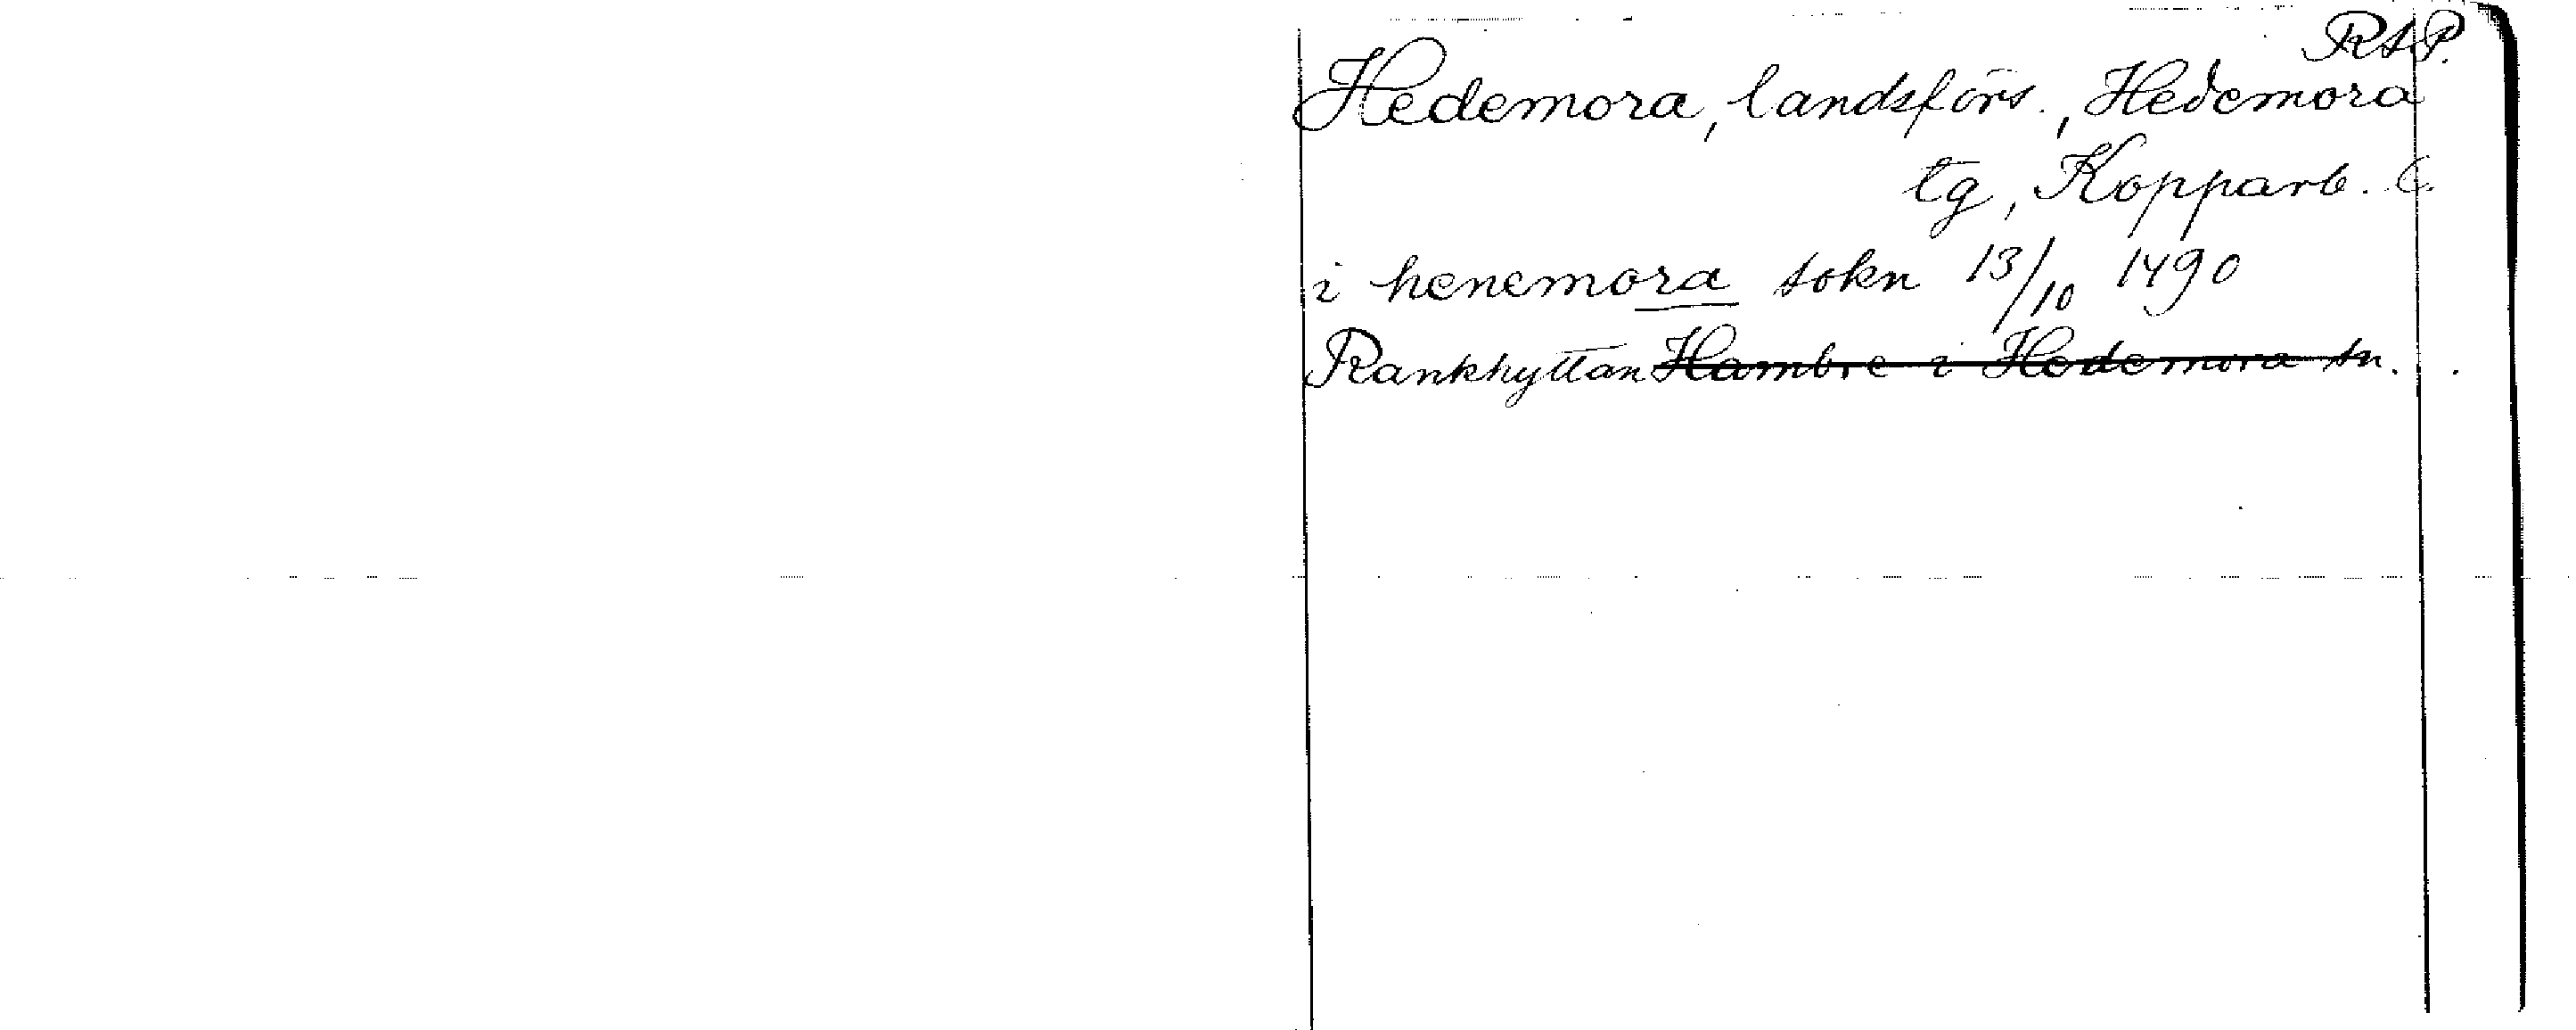 RAP.
Hedemora, landsförs., Hedemora
tg, Kopparb. l.
i henemora sokn 13/10 1490
Rankhyttan Hambre i Hedemora sn.